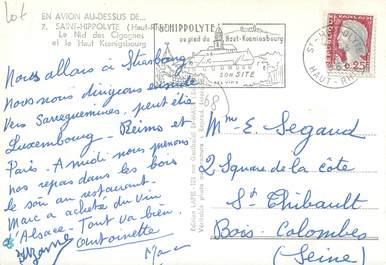 Lot
EN AVION AU-DESSUS DE...
7. SAINT-HIPPOLYTE (Haut-R
Le Nid des Cigognes
et le Haut Kœnigsbourg
St HIPPOLYTE
au pied du Haut-Kœnigsbourg
SON SITE
SES VINS
HAUT-RHIN
0,25
368
Nous allons à Strasbourg
Nous nous dirigeons ensuite
Vers Sarreguemines, peut être
Luxembourg - Reims et
Paris - A midi nous prenons
nos repas dans les bois
le soir au restaurant.
Marc a acheté du vin
d'Alsace - Tout va bien.
Suzanne Antoinette
Marc
Mme E. Segaud
2 Square de la côte
St Thibault
Bois-Colombes
(Seine)